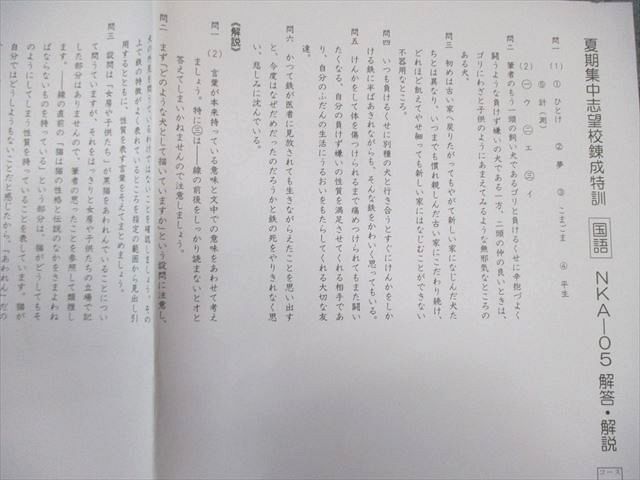 夏期集中志望校錬成特訓 国語 NKA―05 解答・解説
コース
問一 (1) ① ひとけ ② 夢 ③ こまごま ④ 平生
⑤ 計(測)
(2) 一 ウ 二 エ 三 イ
問二 筆者のもう一頭の飼い犬であるゴリと負けるくせに辛抱づよく
闘うような負けず嫌いの犬である一方、二頭の仲の良いときは、
ゴリにわざと子供のようにあまえてみるような無邪気なところの
ある犬。
問三 初めは古い家へ戻りたがってもやがて新しい家になじんだ犬た
ちとは異なり、いつまでも慣れ親しんだ古い家にこだわり続け、
どれほど飢えてやせ細っても新しい家にはなじむことができない
不器用なところ。
問四 いつも負けるくせに別種の犬と行き合うとすぐにけんかをしか
ける鉄に半ばあきれながらも、そんな鉄をかわいく思っている。
問五 けんかをして体を傷つけられるまで痛めつけられてもまた闘い
たくなる、自分の負けず嫌いの性質を満足させてくれる相手であ
り、自分のふだんの生活にうるおいをもたらしてくれる大切な友
達。
問六 かつて鉄が医者に見放されても生きながらえたことを思い出す
と、今度はなぜだめだったのだろうかと鉄の死をやりきれなく思
い、悲しみに沈んでいる。
《解説》
問一 (2) 言葉が本来持っている意味と文中での意味をあわせて考え
ましょう。特に三は――線の前後をしっかり読まないとオと
答えてしまいかねませんので注意しましょう。
問二 まず「どのような犬として描いていますか」という設問に注意し、
犬の外見を問うているわけではないことを確認しましょう。その
上で鉄の特徴がよく表れているところを指定の範囲から見出し引
用するとともに、性質を表す言葉をそえてまとめましょう。
問三 設問は「女房や子供たち」が黒猫をあわれんでいることについ
て問うていますが、それをはっきりと女房や子供たちの立場で記
した部分はありませんので、筆者の思ったことを参照して類推し
ます。――線の直前の「猫は猫の性格と伝説のなかをさまよわね
ばならないものを持っている」という部分は、猫がどうしてもそ
のようにしてしまう性質を持っていることを表しています。猫が
自分ではどうしようもないことだと感じたから、「あわれん」だの